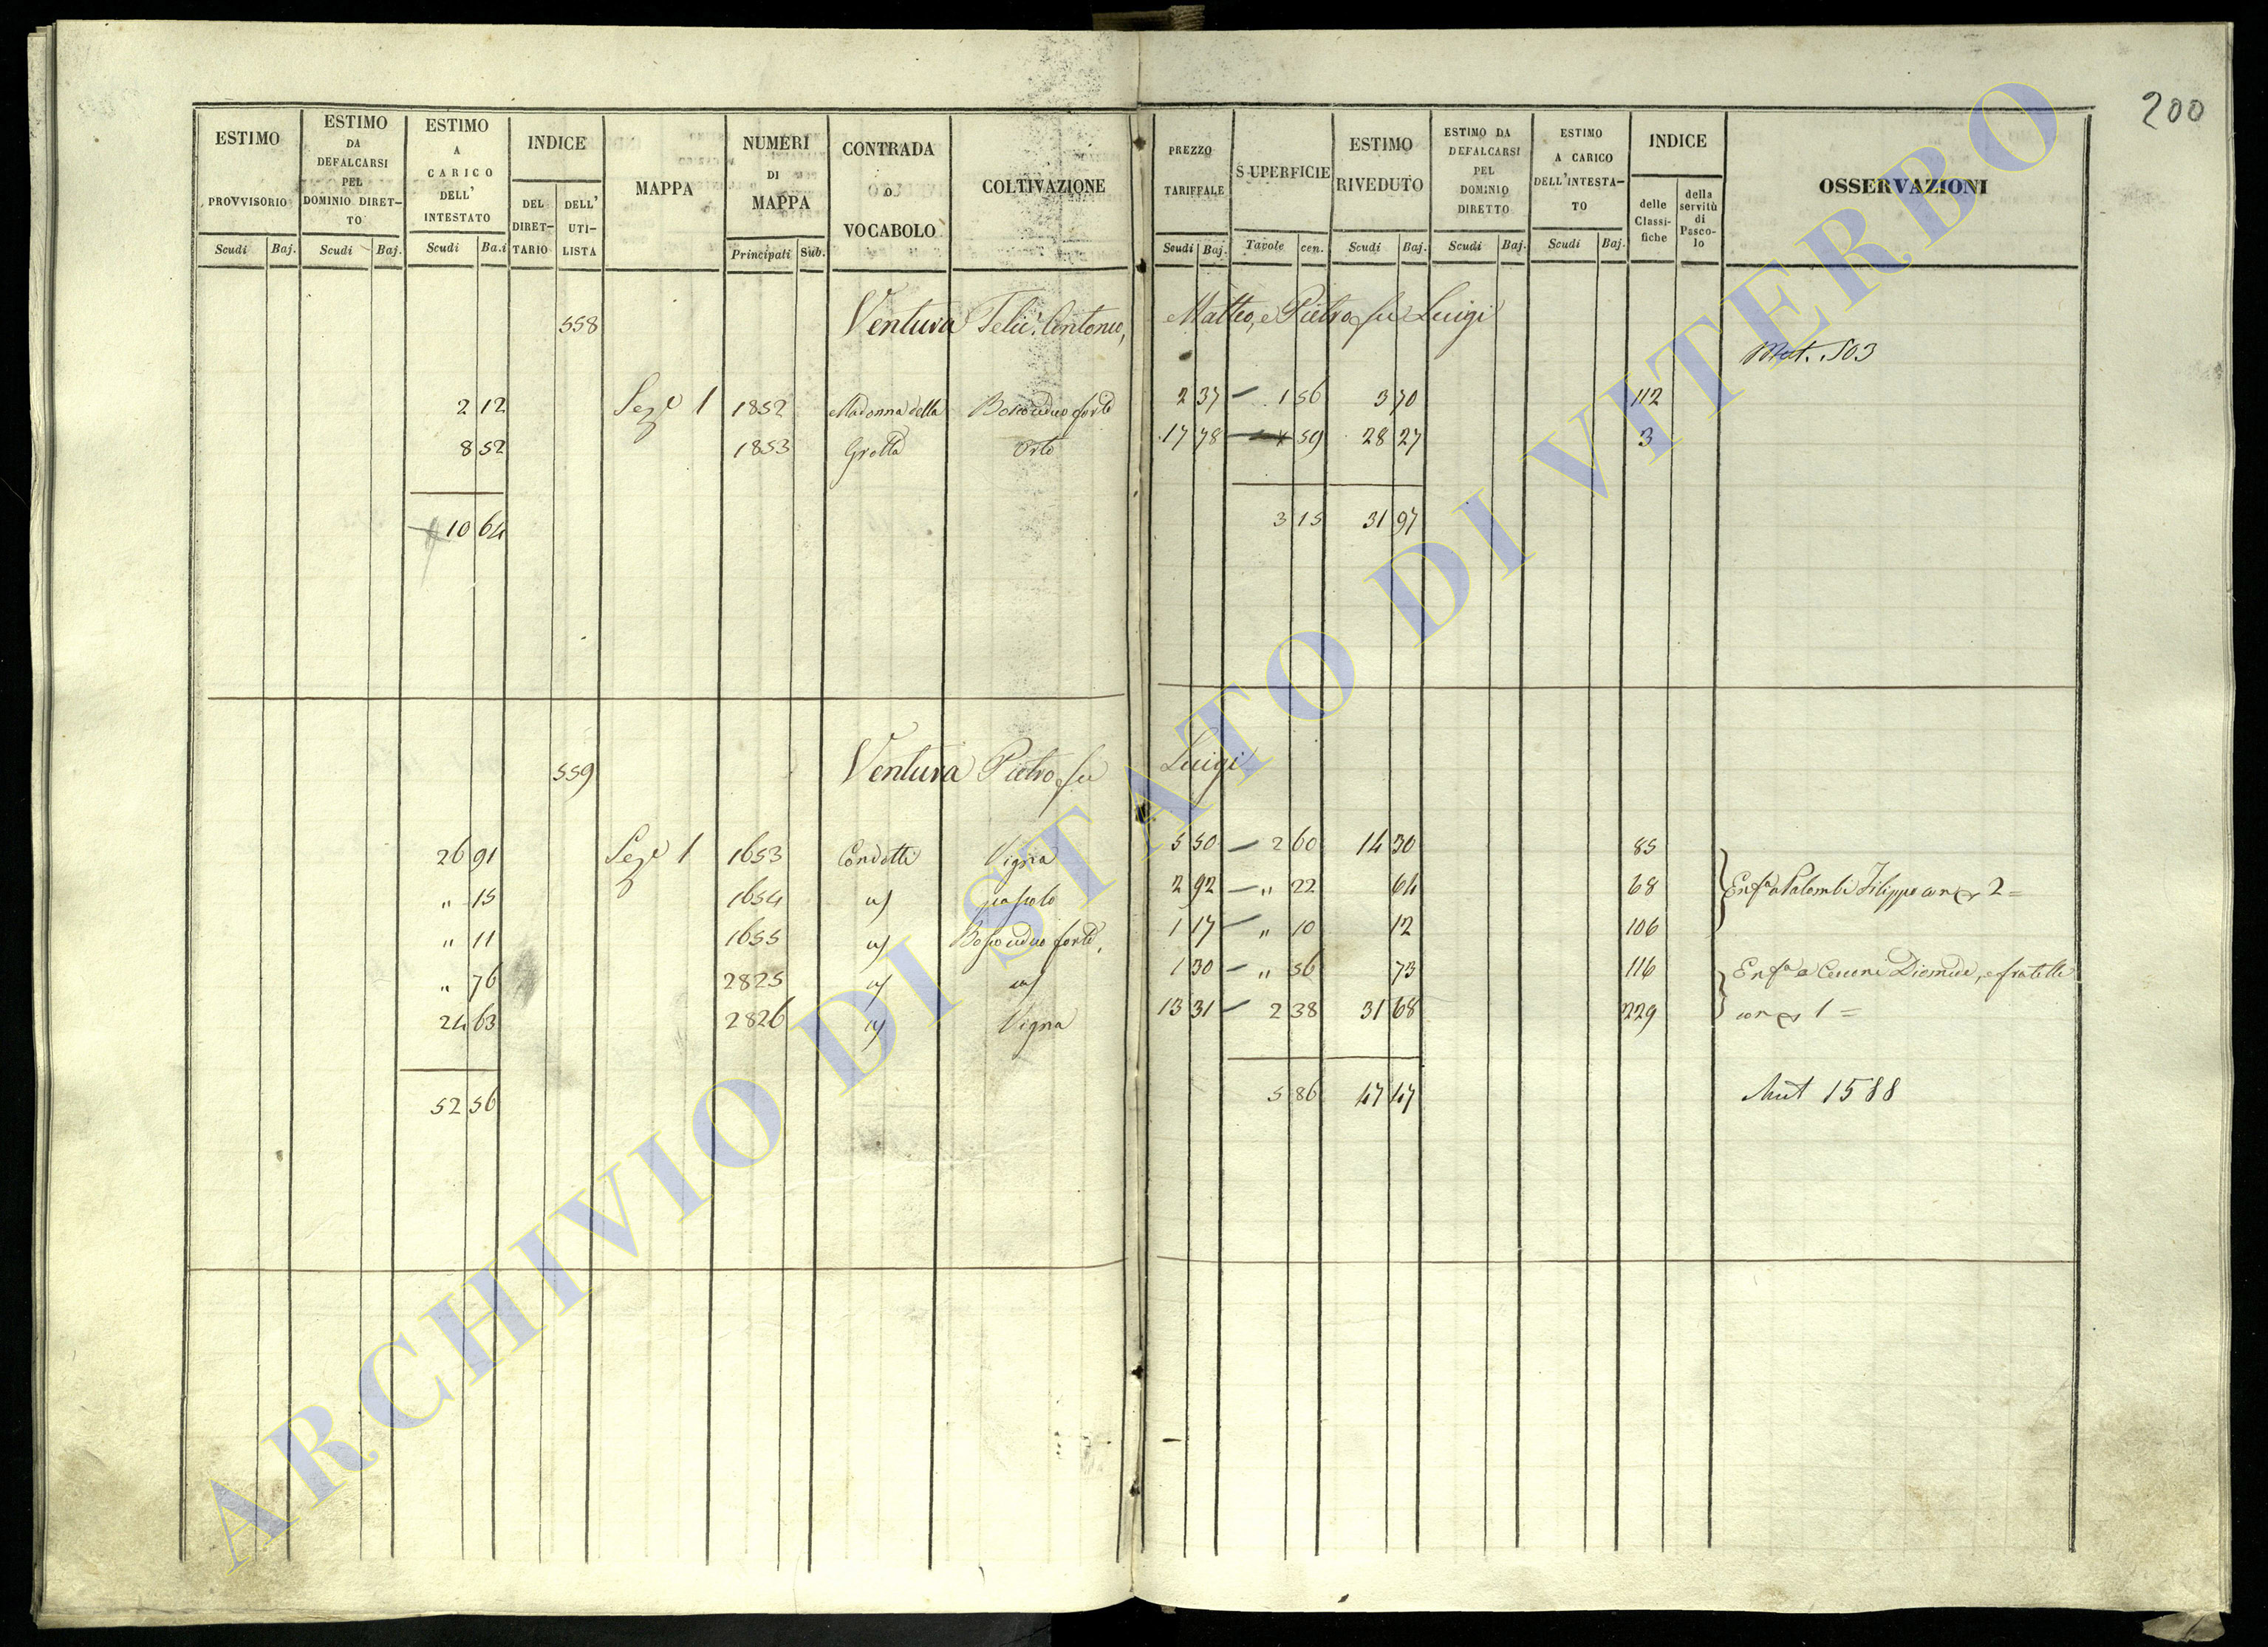 200
ESTIMO PROVVISORIO
ESTIMO DA DEFALCARSI PEL DOMINIO DIRETTO
ESTIMO A CARICO DELL' INTESTATO
INDICE
DEL DIRETTARIO
DELL' UTILISTA
MAPPA
NUMERI DI MAPPA
CONTRADA O VOCABOLO
COLTIVAZIONE
Scudi Baj. Scudi Baj. Scudi Ba.i Principali Sub.
PREZZO TARIFFALE
SUPERFICIE
ESTIMO RIVEDUTO
ESTIMO DA DEFALCARSI PEL DOMINIO DIRETTO
ESTIMO A CARICO DELL'INTESTATO
INDICE
delle Classifiche
della servitù di Pascolo
OSSERVAZIONI
Scudi Baj. Tavole cen. Scudi Baj. Scudi Baj. Scudi Baj.
558 Ventura Antonio, Matteo, e Pietro fu Luigi
Mut. 503
2 12 Sez.e 1 1852 Madonna della Bosco ceduo forte 2 37 1 56 3 70 112
8 52 1853 Grotta Orto 17 78 59 28 27 3
10 64 3 15 31 97
559 Ventura Pietro fu Luigi
26 91 Sez.e 1 1653 Condotti Vigna 5 50 2 60 14 30 85
" 15 1654 pascolo 2 92 " 22 64 68 Enf.a a Palombi Filippo 2 =
" 11 1655 Bosco ceduo forte 1 17 " 10 12 106
" 76 2825 1 30 " 56 73 116 Enf.a a Diomede, e fratelli
24 63 2826 Vigna 13 31 2 38 31 68 229 1 =
52 56 5 86 47 47 Mut 1588
ARCHIVIO DI STATO DI VITERBO